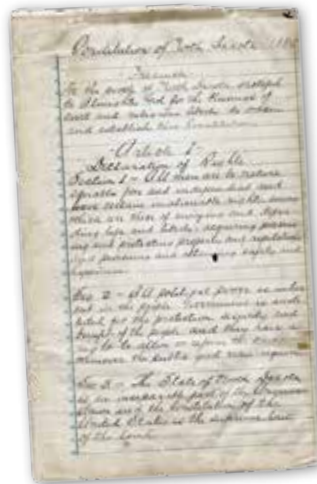 Constitution of North Dakota
Preamble
We the people of North Dakota grateful
to Almighty God for the blessings of
civil and religious liberty do ordain
and establish this
Article 1
Declaration of Rights
Section 1 - All men are by nature
equally free and independent and
have certain inalienable rights among
which are those of enjoying and defen
ding life and liberty; acquiring possess
ing and protecting property and reputation
and pursuing and obtaining safety and
happiness.
Sec 2 - All political power is inher
ent in the people Government is insti
tuted for the protection security and
benefit of the people and they have a
right to alter or reform the same
whenever the public good may require
Sec 3 - The State of North Dakota
is an inseparable part of the American
Union and the Constitution of the
United States is the supreme law
of the land